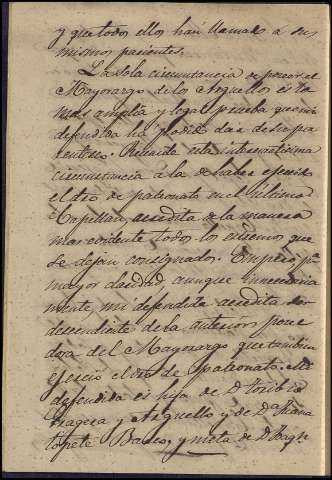 y que todos ellos han llamado a sus
mismos parientes.
La sola circunstancia de poseer el
Mayorazgo de los Arguellos es la
mas amplia y legal prueba que mi
defendida ha podido dar de su pa
rentesco. Reunida esta interesantisima
circunstancia a la de haber ejercido
el dro de patronato en el ultimo
Capellan, acredita de la manera
mas evidente todos los extremos que
se dejan consignados. Empero pa
mayor claridad, aunque innecesaria
mente, mi defendida acredita ser
descendiente de la anterior posee
dora del Mayorazgo que tambien
ejerció el dro de patronato. Mi
defendida es hija de Dn Toribio
y Arguello y de Da
Topete y nieta de Dn